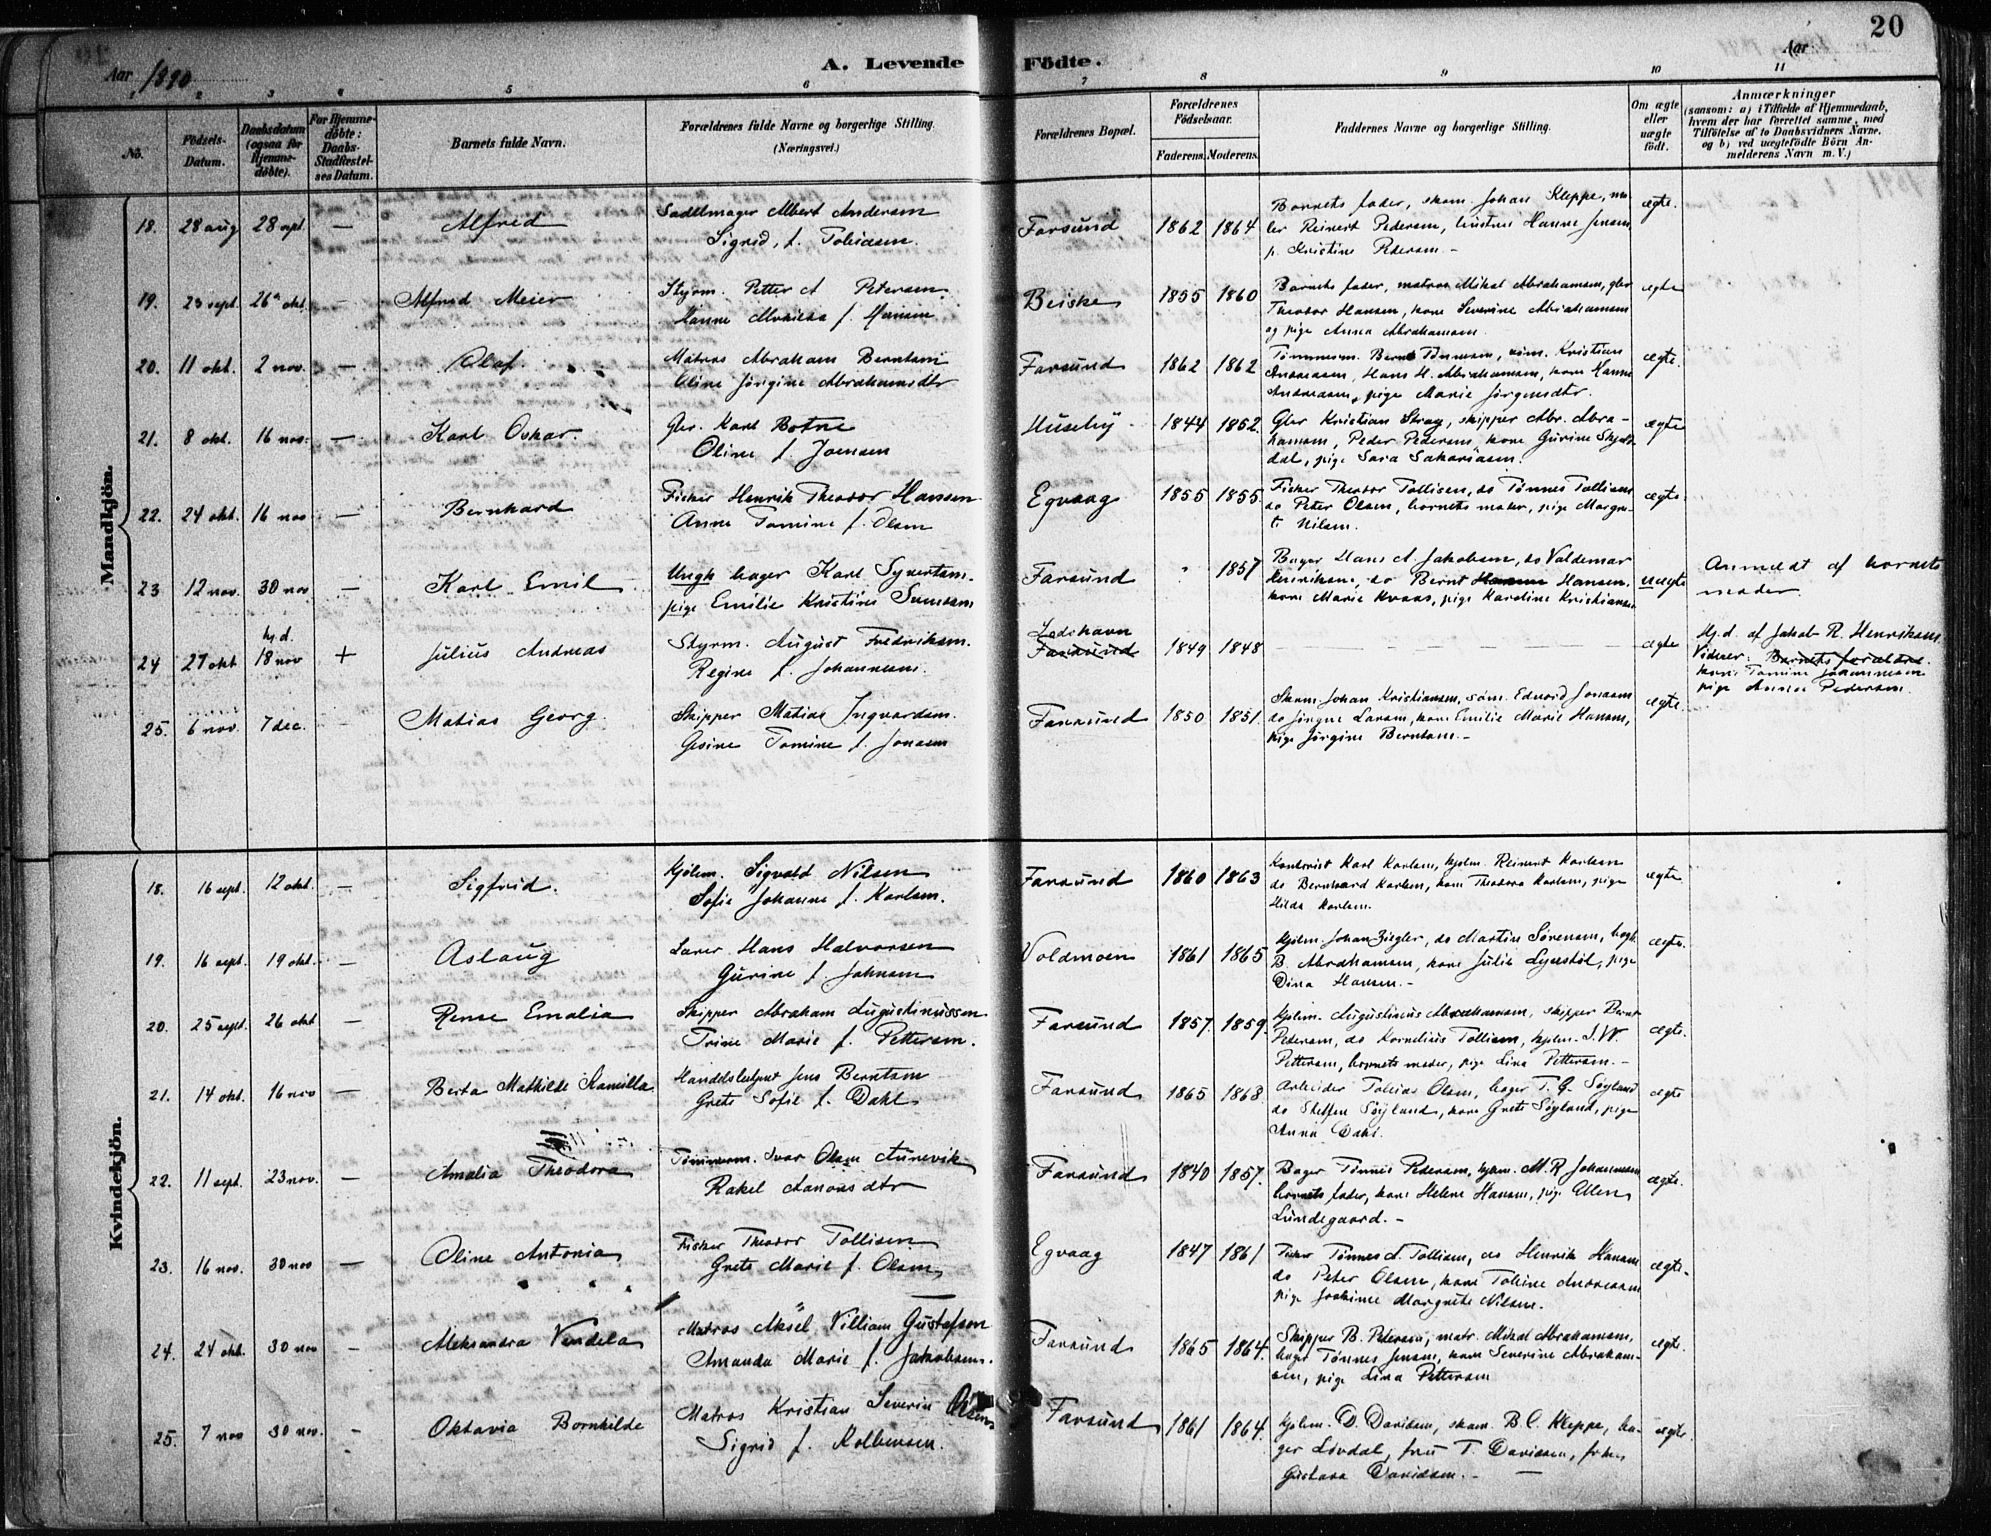 20
Aar 1890
A. Levende Födte.
Aar
1 2 3 4 5 6 7 8 9 10 11
No.
Födsels-Datum.
Daabsdatum (ogsaa for Hjemme-døbte).
For Hjemme-døbte: Daabs-Stadfæstel-ses Datum.
Barnets fulde Navn.
Forældrenes fulde Navne og borgerlige Stilling. (Næringsvei.)
Forældrenes Bopæl.
Forældrenes Födselsaar.
Faderens. Moderens.
Faddernes Navne og borgerlige Stilling.
Om ægte eller uægte födt.
Anmærkninger
(saasom: a) i Tilfælde af Hjemmedaab, hvem der har forrettet samme, med Tilföielse af to Daabsvidners Navne, og b) ved uægtefödte Börn An-melderens Navn m. V.)
Mandkjön.
18. 28 aug 28 sept. — Alfred
Sadelmager Albert Andersen
Sigrid, f. Tobiasen.
Farsund 1862 1864
Barnets fader, skom. Johan Kleppe, ma-
ler Reinert Pedersen, hustru Hanne Jensen,
p. Kristine Pedersen. —
ægte.
19. 23 sept. 26 okt. — Alfred Meier
Styrm. Petter A Petersen
Hanne f. Hansen
Beiske 1855 1860
Barnets fader, matros Mikal Abrahamsen, gbr
Theodor Hansen, kone Severine Abrahamsen
og pige Anna Abrahamsen.
ægte
20. 11 okt. 2 nov. — Olaf.
Matros Abraham Berntsen
Oline Jørgine Abrahamsdtr
Farsund 1862 1862
Tømmerm. Bernt Tønnesen, søm. Kristian
Andreasen, Hans H. Abrahamsen, kone Hanne
Andreasen, pige Marie Jørgensdtr.
ægte.
21. 8 okt. 16 nov. — Karl Oskar.
Gbr. Karl Botne
Oline f. Joensen
Huseby 1844 1852
Gbr Kristian Stray, skipper Abr. Abra-
hamsen, Peder Pedersen, kone Gurine
dal, pige Sara Sakariasen.
ægte
22. 24 okt. 16 nov — Bernhard
Fisker Henrik Theodor Hansen
Anne Tomine f. Olsen
Egvaag 1855 1855
Fisker Theodor Tollisen, do Tønnes Tollisen
do Peter Olsen, barnets moder, pige Margre-
te Nilsen.
ægte.
23 12 nov. 30 nov — Karl Emil
Ungk. bager Karl Syvertsen.
pige Emilie Kristine
Farsund " 1857
Bager Hans A Jakobsen, do Valdemar
Henriksen, do Bernt Hansen,
kone Marie Kvaas, pige Karoline Kristiansen
uægte
Anmeldt af barnets
moder.
24 27 okt hj.d. 18 nov + Julius Andreas
Styrm. August Fredriksen.
Regine f. Johannesen.
Lodshavn
Farsund 1849 1848
ægte
Hj.d. af Jakob R. Henriksen.
Vidner: Barnets forældre.
kone Tomine Johannesen
pige Anna Pedersen.
25. 6 nov. 7 dec. — Matias Georg.
Skipper Matias Ingvardsen.
Gesine Tomine f. Jonasen
Farsund 1850 1851.
Skom. Johan Kristiansen, søm. Edvard Jonasen
do Jørgen Larsen, kone Emilie Marie Hansen,
pige Jørgine Berntsen. —
ægte.
Kvindekjön.
18. 16 sept. 12 okt. — Sigfrid.
Kjøbm. Sigvald Nilsen
Sofie Johanne f. Karlsen.
Farsund 1860 1863
Kontorist Karl Karlsen, kjøbm. Reinert Karlsen
do Bernhard Karlsen, kone Theodora Karlsen, pige
Hilda Karlsen.
ægte
19. 16 sept. 19 okt. — Aslaug
Lærer Hans Halvorsen
Gurine f. Johnsen
Voldmoen 1861 1865
Kjøbm. Johan Ziegler, do Martin Sørensen, bogh.
B. Abrahamsen, kone Julie, pige
Dina Hansen. —
ægte.
20. 25 sept. 26 okt — Rense Emalia
Skipper Abraham Augustinussen
Trine Marie f. Pettersen.
Farsund 1857. 1859.
Kjøbm. Augustinius Abrahamsen, skipper Bernt
Pedersen, do Kornelius Tollisen, kjøbm. J. W.
Pettersen, barnets moder, pige Lina Pettersen. —
ægte.
21. 14 okt. 16 nov — Berta Mathilde Kamilla
Handelsbetjent Jens Berntsen
Grete Sofie f. Dahl
Farsund 1865 1868.
Arbeider Tobias Olsen, bager T. G. Søyland
do Steffen Søyland, kone Grete Søyland, pige
Anna Dahl.
ægte
22. 11 sept. 23 nov. — Amalia Theodora
Tømmerm. Ivar Olsen Aunevik
Rakel Aanonsdtr
Farsund 1840 1857.
Bager Tønnes Pedersen, kjøbm. M. R. Johannesen
barnets fader, kone Helene Hansen, pige Ellen
Lundegaard. —
ægte.
23. 16 nov. 30 nov — Oline Antonia
Fisker Theodor Tollisen
Grete Marie f. Olsen
Egvaag 1847 1861
Fisker Tønnes A. Tollisen, do Henrik Hansen
do Peter Olsen, kone Tolline Andreasen
pige Joakime Margrete Nilsen.
ægte.
24. 24 okt. 30 nov — Aleksandra Vendela
Matros Aksel Villiam Gustafson
Amanda Marie f. Jakobsen.
Farsund 1865 1864.
Skipper B. Pedersen, matr. Mikal Abrahamsen,
bager Tønnes Jensen, kone Severine Abraham-
sen, pige Lina Pettersen
ægte.
25. 7 nov 30 nov. — Oktavia Bornhilde
Matros Kristian Severin Olsen
Sigrid f. Kolbensen.
Farsund 1861 1864.
Kjøbm. D. Davidsen, skom. B. C. Kleppe, ba-
ger Løvdal, fru T. Davidsen, frøken
Gustava Davidsen. —
ægte.